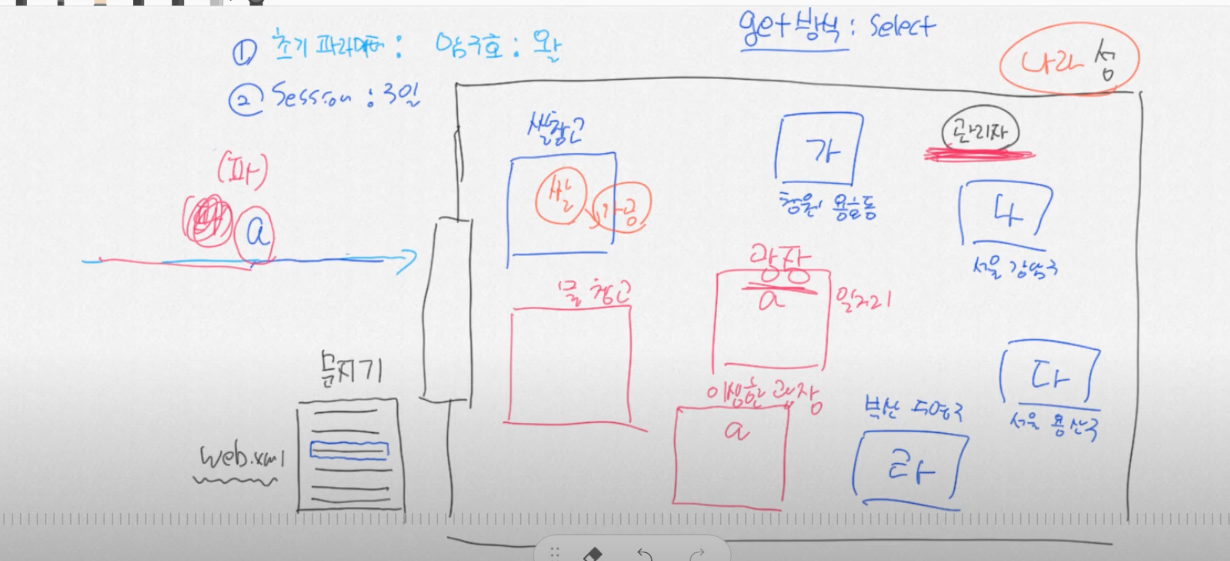 ① 초기 파라미터 : 암구호 : 왕
② Session : 3일
get방식 : Select
나라 성
관리자
쌀창고
쌀
가공
가
창원 용호동
나
서울 강악구
(파)
a
광장
a
일거리
물 창고
문지기
web.xml
a
다
서울 용산구
라